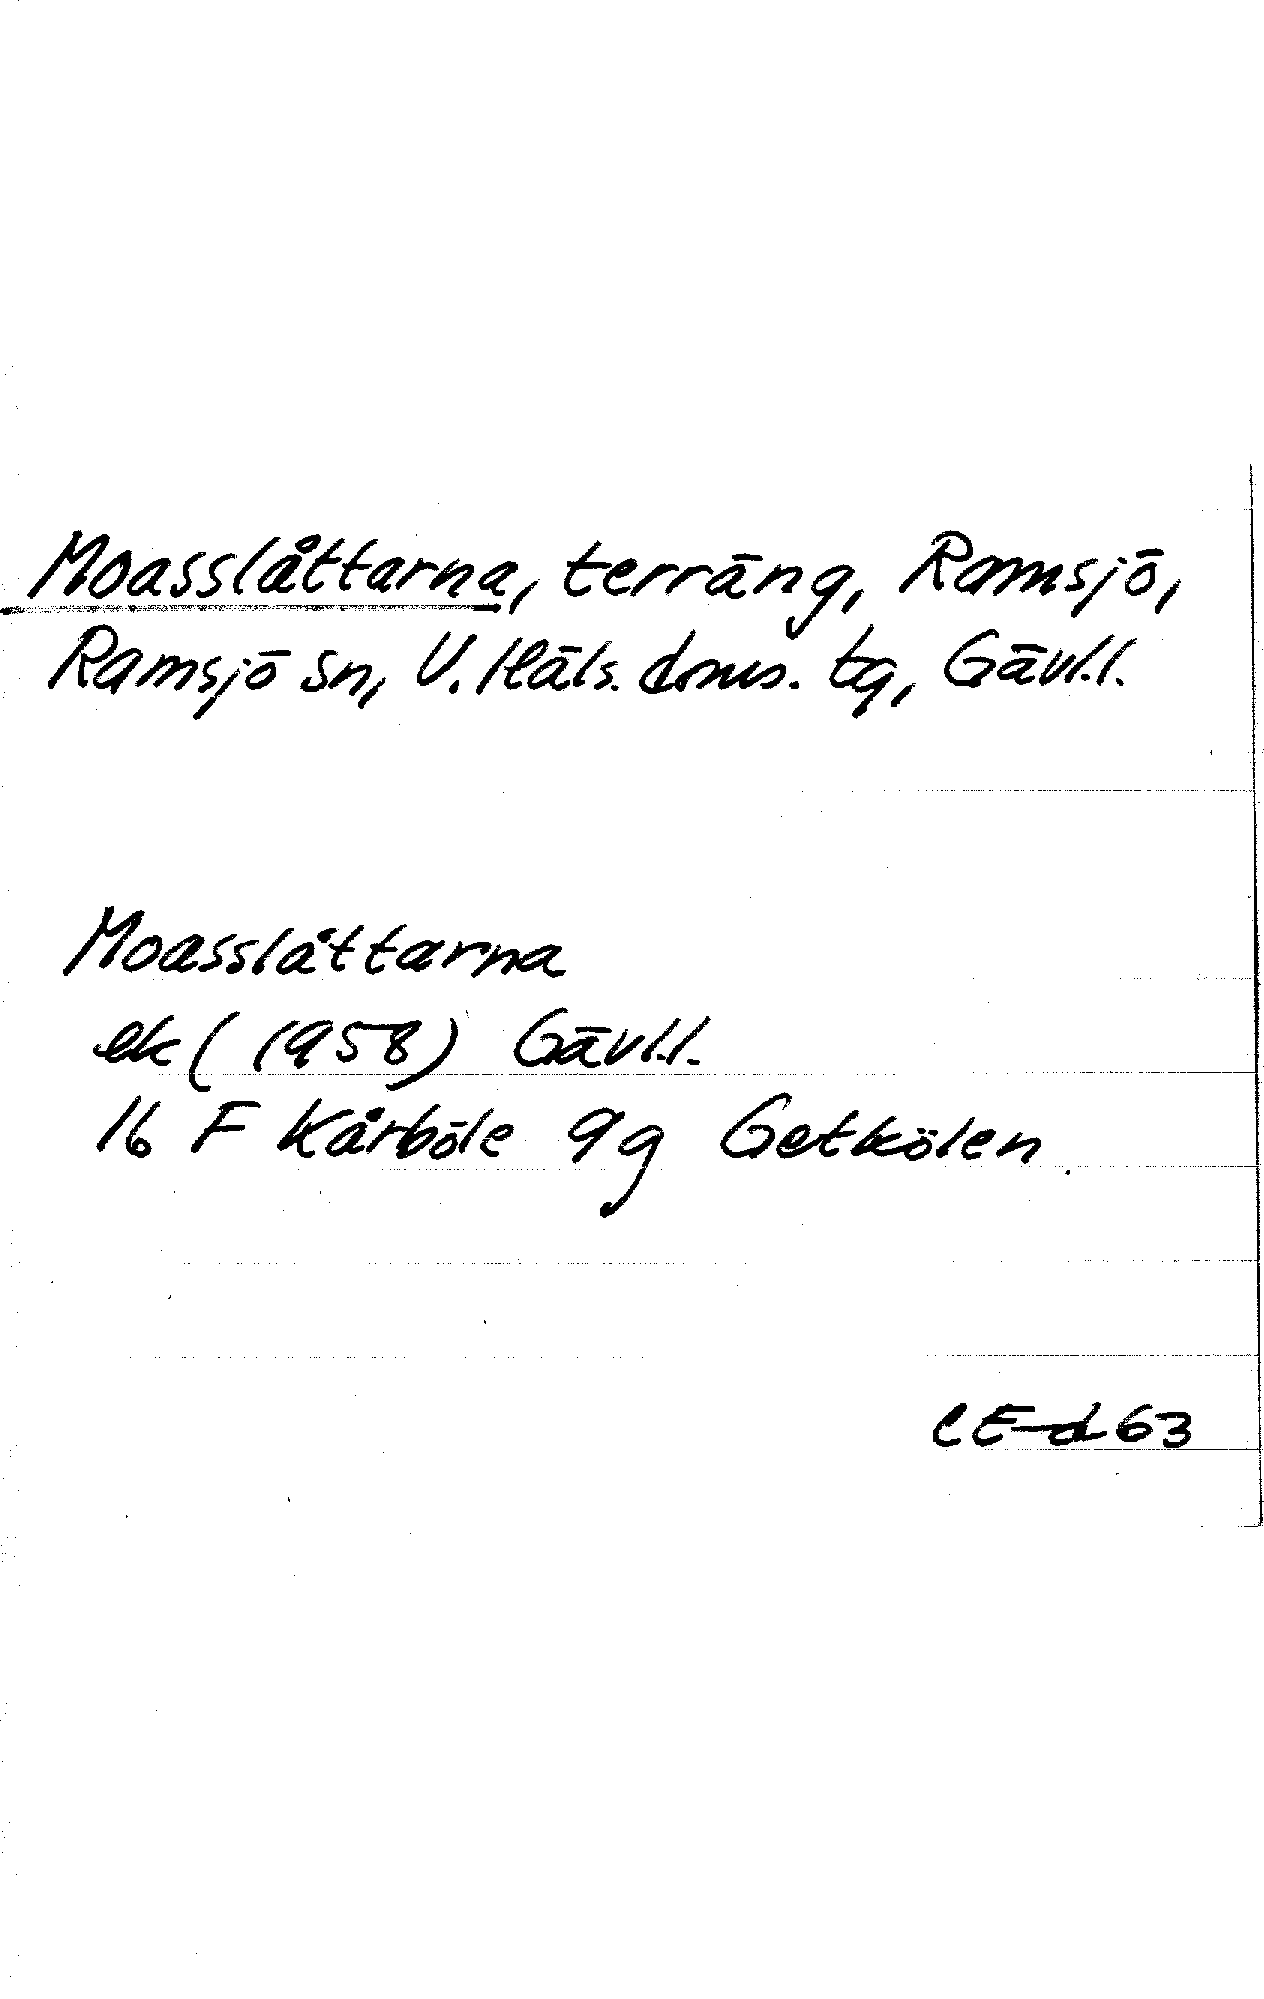 Moasslåttarna, terräng, Ramsjö,
Ramsjö sn, V. Häls. doms. tg, Gävl.l.
Moasslåttarna
ek (1958) Gävl.l.
16 F Kårböle 9g Getkölen
CE-d 63